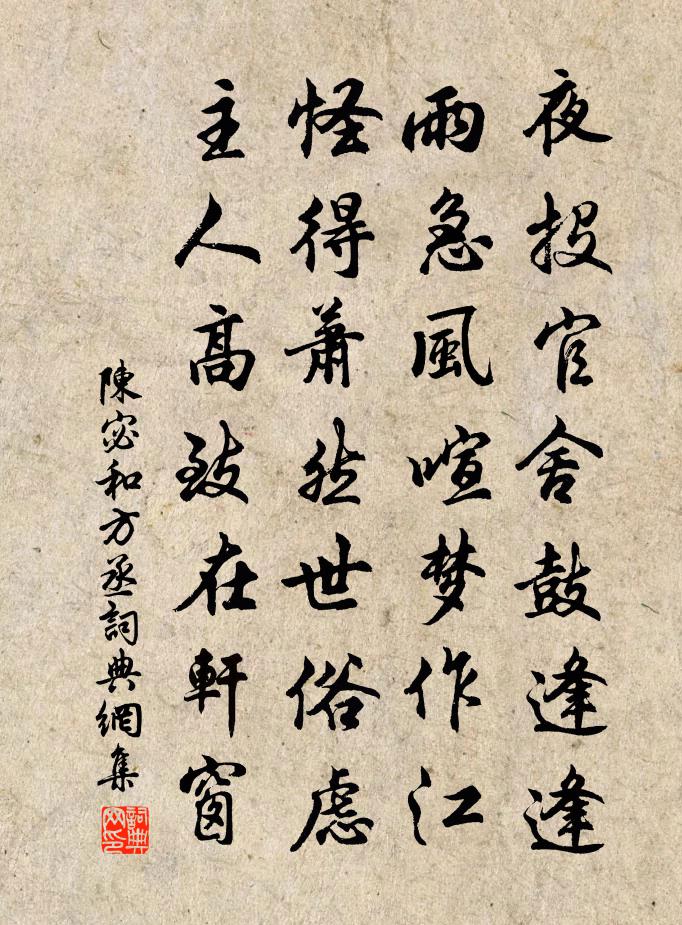 夜投官舍鼓逢逢
雨急風喧梦作江
怪得蕭然世俗慮
主人高致在軒窗
陳宓和方丞詞典網集
詞典网印